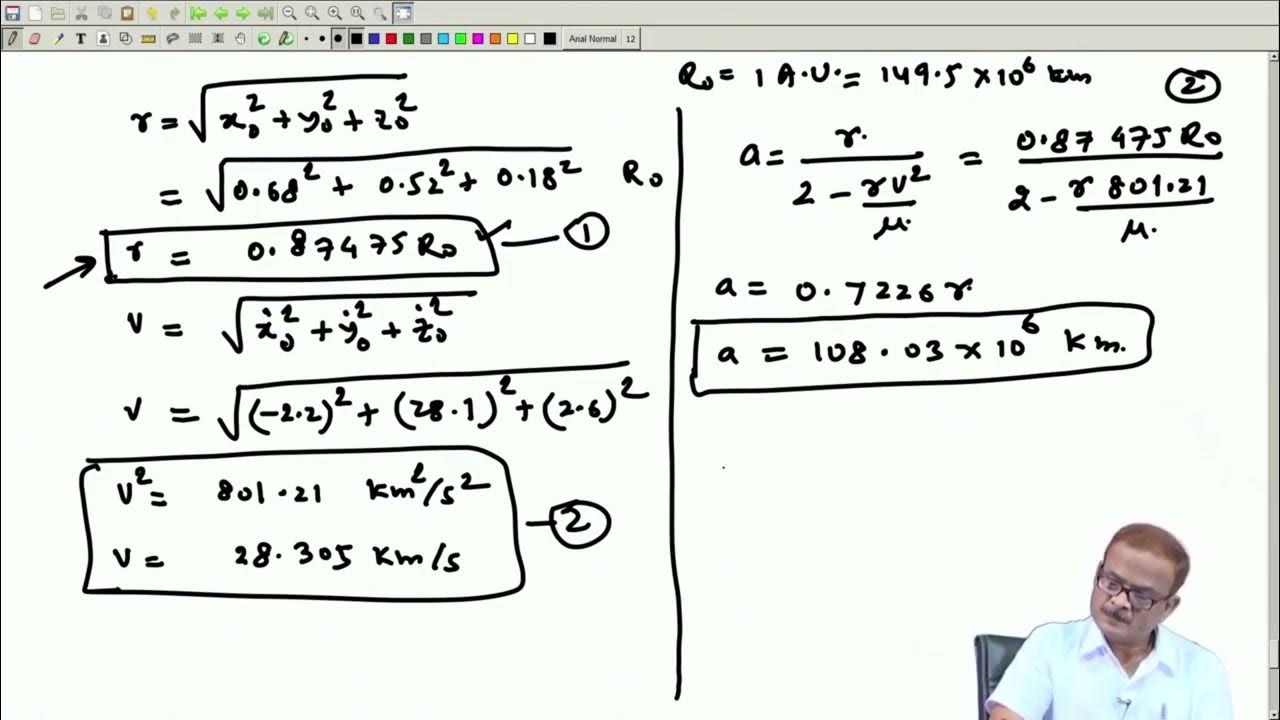 Arial Normal 12
r = √(x₀² + y₀² + z₀²)
= √(0.68² + 0.52² + 0.18²) R₀
r = 0.87475 R₀ — ①
v = √(ẋ₀² + ẏ₀² + ż₀²)
v = √((-2.2)² + (28.1)² + (2.6)²)
v² = 801.21 km²/s²
v = 28.305 km/s — ②
R₀ = 1 A.U. = 149.5 × 10⁶ km ②
a = r / (2 - rv²/μ) = 0.87475 R₀ / (2 - r 801.21/μ)
a = 0.7226 r
a = 108.03 × 10⁶ km.